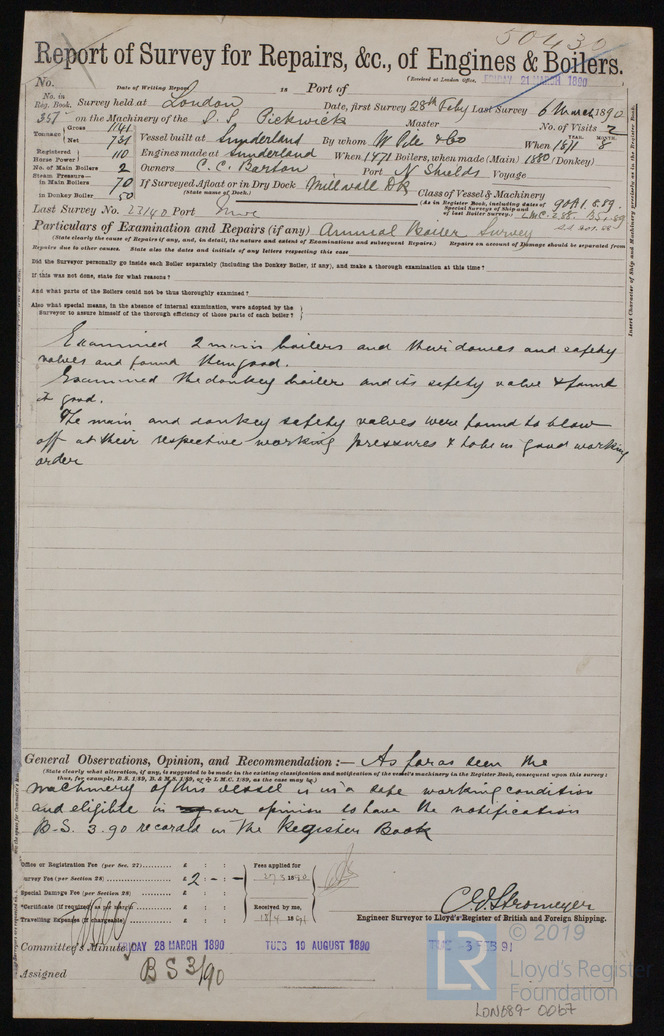 50430
Report of Survey for Repairs, &c., of Engines & Boilers.
(Received at London Office, FRIDAY 21 MARCH 1890
No.
Date of Writing Report 18 Port of
No. in Reg. Book. Survey held at London Date, first Survey 28th Feby Last Survey 6 March 1890
357 on the Machinery of the S.S. Pickwick Master No. of Visits 2
Tonnage Gross 1141 Net 731 Vessel built at Sunderland By whom W Pile & Co When 1871 YEAR. MONTH. 8
Registered Horse Power 110 Engines made at Sunderland When 1871 Boilers, when made (Main) 1880 (Donkey)
No. of Main Boilers 2 Owners C. C. Barton Port N Shields Voyage
Steam Pressure— in Main Boilers 70 If Surveyed Afloat or in Dry Dock Millwall Dk
(State name of Dock.) Class of Vessel & Machinery 90A1. 8.89.
in Donkey Boiler 50 (As in Register Book, including dates of Special Surveys of Ship and of last Boiler survey.)
Last Survey No. 23140 Port
Particulars of Examination and Repairs (if any) Annual Boiler Survey
(State clearly the cause of Repairs if any, and, in detail, the nature and extent of Examinations and subsequent Repairs.) Repairs on account of Damage should be separated from
Repairs due to other causes. State also the dates and initials of any letters respecting this case
Did the Surveyor personally go inside each Boiler separately (including the Donkey Boiler, if any), and make a thorough examination at this time?
If this was not done, state for what reasons?
And what parts of the Boilers could not be thus thoroughly examined?
Also what special means, in the absence of internal examination, were adopted by the
Surveyor to assure himself of the thorough efficiency of those parts of each boiler?
Examined 2 main boilers and their domes and safety
valves and found them good.
Examined the donkey boiler and its safety valve & found
it good.
The main and donkey safety valves were found to blow
off at their respective working pressures & to be in good working
order
General Observations, Opinion, and Recommendation :— As far as seen the
(State clearly what alteration, if any, is suggested to be made in the existing classification and notification of the vessel's machinery in the Register Book, consequent upon this survey:
thus, for example, B.S. 1/89, B. & M.S. 1/89, or L.M.C. 1/89, as the case may be.)
machinery of this vessel is in a safe working condition
and eligible in our opinion to have the notification
B.S. 3.90 recorded in the Register Book
Office or Registration Fee (per Sec. 27) £ : : Fees applied for
Survey Fee (per Section 28) £ 2 : - : -
Special Damage Fee (per Section 28) £ : :
Certificate (if required) as per margin £ : : Received by me,
Travelling Expenses (if chargeable) £ : :
C E Stromeyer
Engineer Surveyor to Lloyd's Register of British and Foreign Shipping.
Committee's Minute FRIDAY 28 MARCH 1890 TUES 19 AUGUST 1890 TUES 3 FEB 91
Assigned BS 3/90
© 2019
LR Lloyd's Register
Foundation
LON689-0067